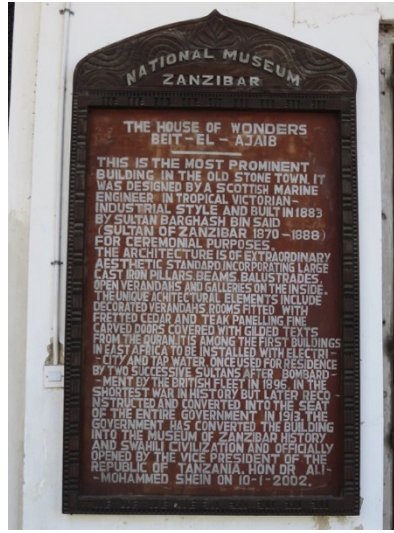 NATIONAL MUSEUM
ZANZIBAR
THE HOUSE OF WONDERS
BEIT-EL-AJAIB
THIS IS THE MOST PROMINENT
BUILDING IN THE OLD STONE TOWN. IT
WAS DESIGNED BY A SCOTTISH MARINE
ENGINEER IN TROPICAL VICTORIAN-
INDUSTRIAL STYLE AND BUILT IN 1883
BY SULTAN BARGHASH BIN SAID
(SULTAN OF ZANZIBAR 1870-1888)
FOR CEREMONIAL PURPOSES.
THE ARCHITECTURE IS OF EXTRAORDINARY
AESTHETIC STANDARD, INCORPORATING LARGE
CAST IRON PILLARS, BEAMS, BALUSTRADES,
OPEN VERANDAHS AND GALLERIES ON THE INSIDE.
THE UNIQUE ACHITECTURAL ELEMENTS INCLUDE
DECORATED VERANDAHS ROOMS FITTED WITH
FRETTED CEDAR AND TEAK PANELLING FINE
CARVED DOORS COVERED WITH GILDED TEXTS
FROM THE QURAN. IT IS AMONG THE FIRST BUILDINGS
IN EAST AFRICA TO BE INSTALLED WITH ELECTRI-
CITY AND TAP WATER. ONCE USED FOR RESIDENCE
BY TWO SUCCESSIVE SULTANS AFTER BOMBARD-
-MENT BY THE BRITISH FLEET IN 1896, IN THE
SHORTEST WAR IN HISTORY BUT LATER RECO-
-STRUCTED AND CONVERTED INTO THE SEAT
OF THE ENTIRE GOVERNMENT IN 1913. THE
GOVERNMENT HAS CONVERTED THE BUILDING
INTO THE MUSEUM OF ZANZIBAR HISTORY
AND SWAHILI CIVILIZATION AND OFFICIALLY
OPENED BY THE VICE PRESIDENT OF THE
REPUBLIC OF TANZANIA. HON DR ALI-
-MOHAMMED SHEIN ON 10-1-2002.